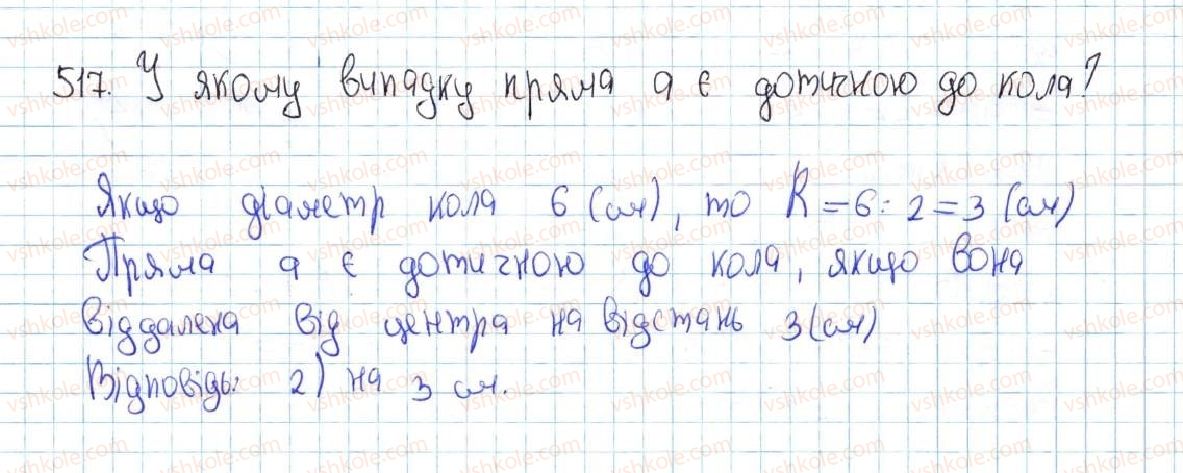 517. У якому випадку пряма a є дотичною до кола?
Якщо діаметр кола 6 (см), то R = 6 : 2 = 3 (см)
Пряма a є дотичною до кола, якщо вона
віддалена від центра на відстань 3 (см)
Відповідь: 2) на 3 см.